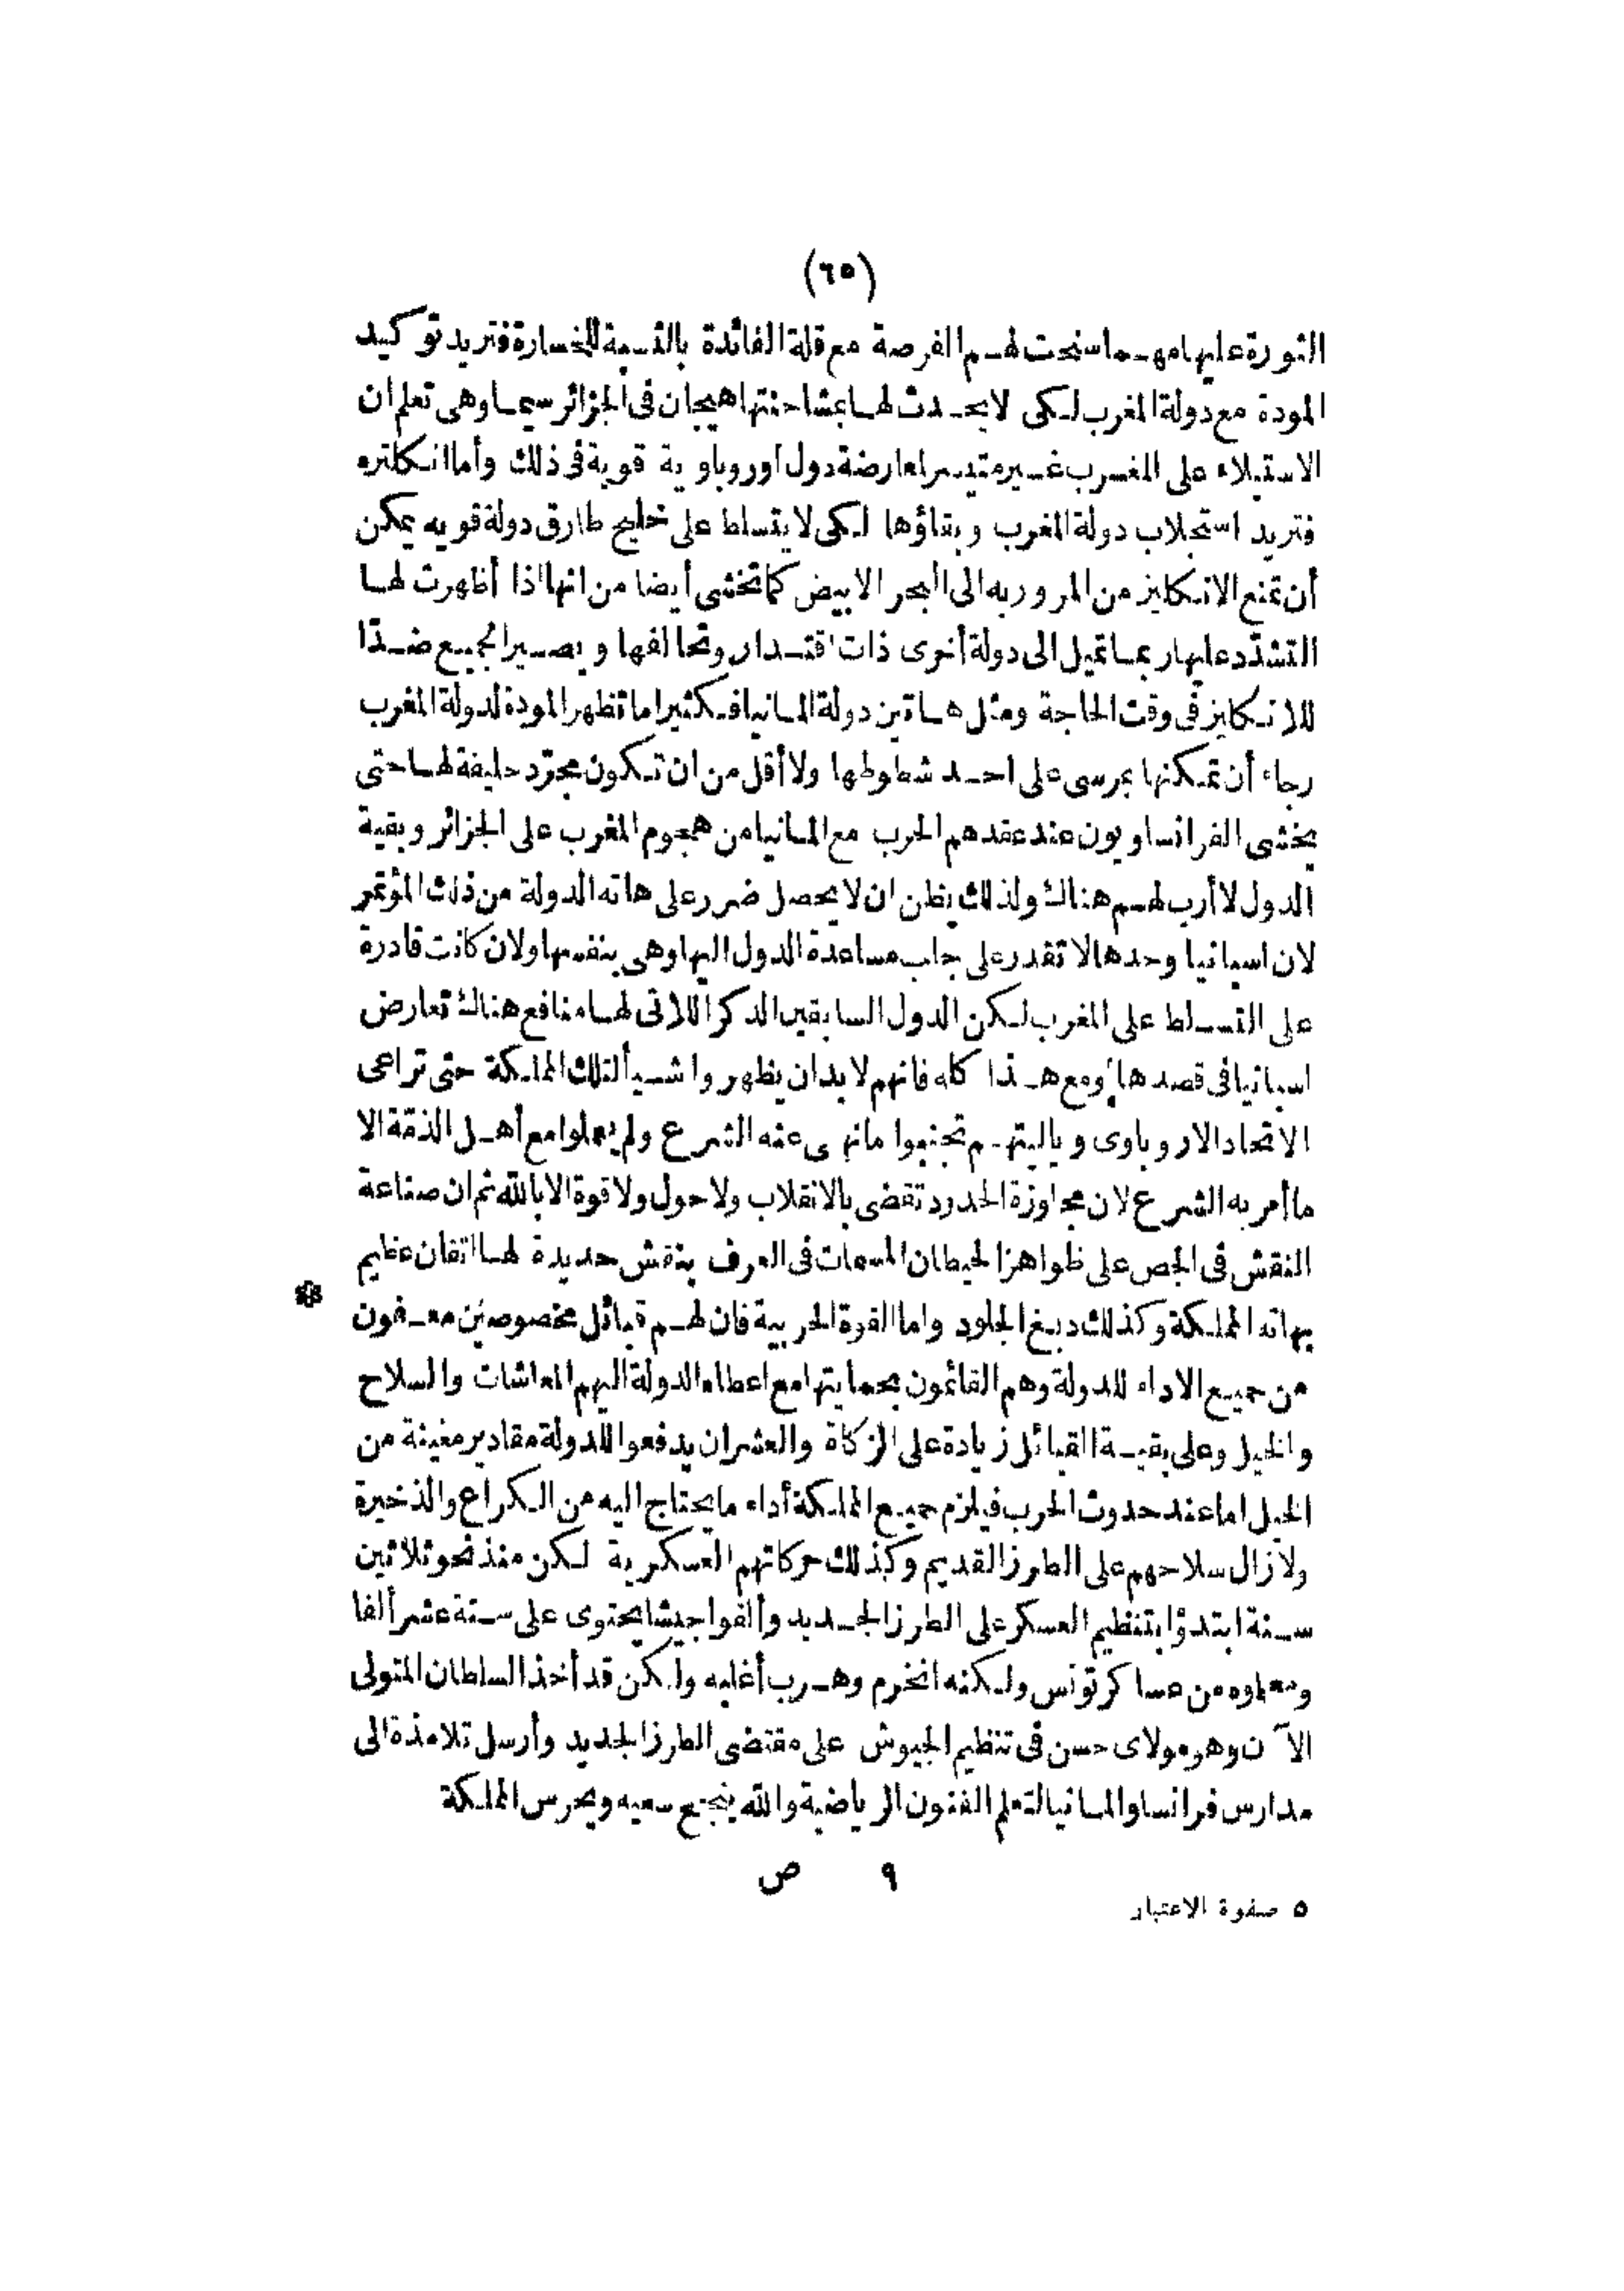 (٦٥)
الثورة عليها مهما سنحت لهم الفرصة مع قلة الفائدة بالنسبة للخسارة فتريد توكيد
المودة مع دولة المغرب لكى لا يحدث لها بمشاحنتها هيجان فى الجزائر سيما وهى تعلم ان
الاستيلاء على المغرب غير متيسر لمعارضة دول اوروباوية قوية فى ذلك وأما انكلتره
فتريد استجلاب دولة المغرب وبقاؤها لكى لا يتسلط على خليج طارق دولة قويه يمكن
أن تمنع الانكليز من المرور به الى البحر الابيض كما تخشى أيضا من انها اذا أظهرت لها
التشدّد عليها ربما تميل الى دولة أخرى ذات اقتدار وتحالفها ويصير الجميع ضدّا
للانكليز فى وقت الحاجة ومثل هاتين دولة المانيا فكثيرا ما تظهر المودة لدولة المغرب
رجاء أن تمكنها بمرسى على احد شطوطها ولا أقل من ان تكون مجرّد حليفة لها حتى
يخشى الفرانساويون عند عقدهم الحرب مع المانيا من هجوم المغرب على الجزائر وبقية
الدول لا أرب لهم هناك ولذلك يظن ان لا يحصل ضرر على هاته الدولة من ذلك المؤتمر
لان اسبانيا وحدها لا تقدر على جلب مساعدة الدول اليها وهى بنفسها ولان كانت قادرة
على التسلط على المغرب لكن الدول السابقين الذكر اللاتى لها منافع هناك تعارض
اسبانيا فى قصدها ومع هذا كله فانهم لا بد ان يظهروا شيأ لتلك المملكة حتى تراعى
الاتحاد الاروباوى وياليتهم تجنبوا ما نهى عنه الشرع ولم يعملوا مع أهل الذمّة الا
ما أمر به الشرع لان مجاوزة الحدود تقضى بالانقلاب ولا حول ولا قوة الا بالله ثم ان صناعة
النقش فى الجص على ظواهر الحيطان المسمات فى العرف بنقش حديدة لها اتقان عظيم
بهاته المملكة وكذلك دبغ الجلود واما القوة الحربية فان لهم قبائل مخصوصين معفون
من جميع الاداء للدولة وهم القائمون بحمايتها مع اعطاء الدولة اليهم المعاشات والسلاح
والخيل وعلى بقية القبائل زيادة على الزكاة والعشران يدفعوا للدولة مقادير معينة من
الخيل اما عند حدوث الحرب فيلزم جميع المملكة أداء ما يحتاج اليه من الكراع والذخيرة
ولا زال سلاحهم على الطرز القديم وكذلك حركاتهم العسكرية لكن منذ نحو ثلاثين
سنة ابتدؤا بتنظيم العسكر على الطرز الجديد وألفوا جيشا يحتوى على ستة عشر ألفا
ومعلموه من عساكر تونس ولكنه انخرم وهرب أغلبه ولكن قد أخذ السلطان المتولى
الآن وهو مولاى حسن فى تنظيم الجيوش على مقتضى الطرز الجديد وأرسل تلامذة الى
مدارس فرانسا والمانيا لتعلم الفنون الرياضية والله ينجح سعيه ويحرس المملكة
٩ ص
٥ صفوة الاعتبار